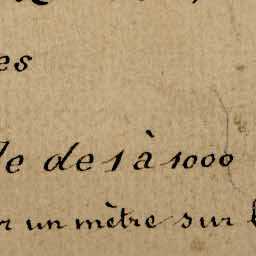 es
le de 1 à 1000
r un mètre sur l